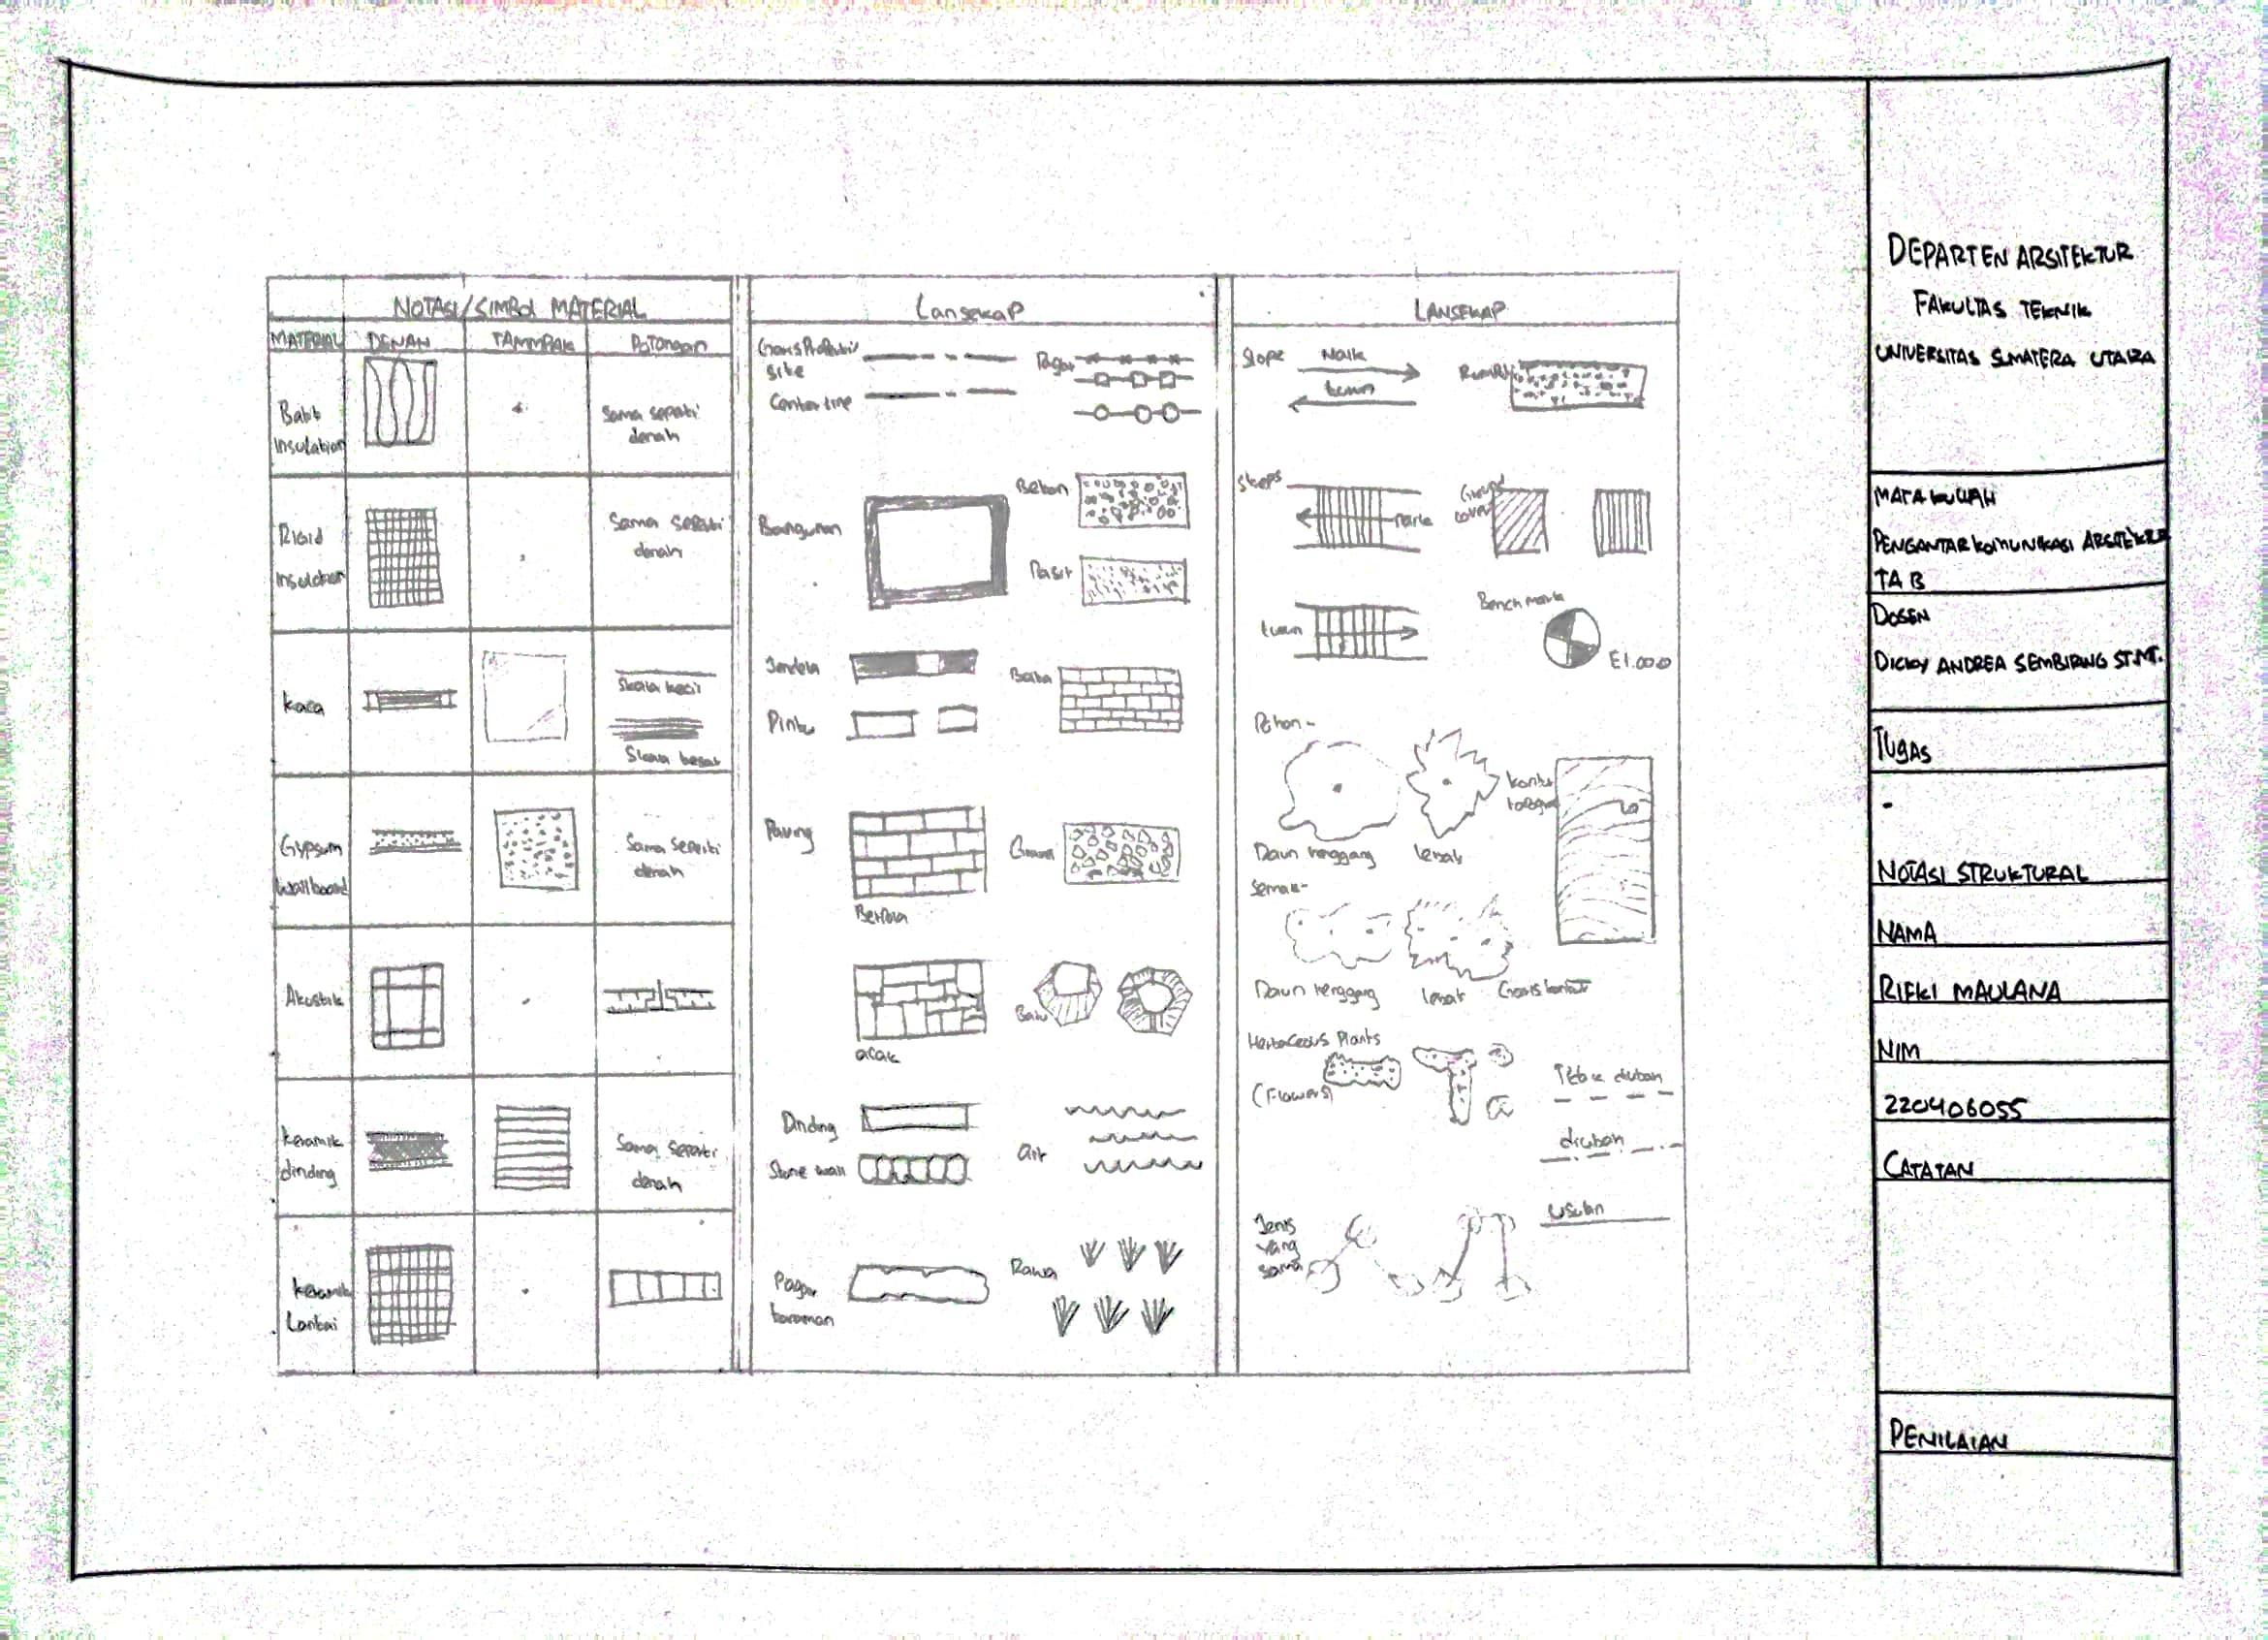 NOTASI/SIMBOL MATERIAL
MATERIAL DENAH TAMMPAK Potongan
Batt
Insulation
Sama seperti
denah
Rigid
Insulation
Sama seperti
denah
Kaca
Skala kecil
Skala besar
Gypsum
Wallboard
Sama seperti
denah
Akustik
Keramik
dinding
Sama seperti
denah
Keramik
Lantai
Lansekap
site
Centerline
Pagar
Bangunan
Beton
Pasir
Jendela
Pintu
Bata
Paving
Berpola
acak
Batu
Dinding
Stone wall
air
Pagar
taraman
Rawa
LANSEKAP
Slope
Naik
turun
Rumput
Steps
naik
Ground
cover
turun
Bench mark
E1.000
Pohon -
Daun renggang
lebat
kontur
Semak -
Daun renggang
lebat
Garis kontur
Herbaceous Plants
(Flowers)
diubah
usulan
Jenis
yang
sama
DEPARTEN ARSITEKTUR
FAKULTAS TEKNIK
UNIVERSITAS SUMATERA UTARA
MATA KULIAH
PENGANTAR KOMUNIKASI ARSITEKTUR
TA B
DOSEN
DICKY ANDREA SEMBIRING ST.MT.
TUGAS
-
NOTASI STRUKTURAL
NAMA
RIFKI MAULANA
NIM
220406055
CATATAN
PENILAIAN